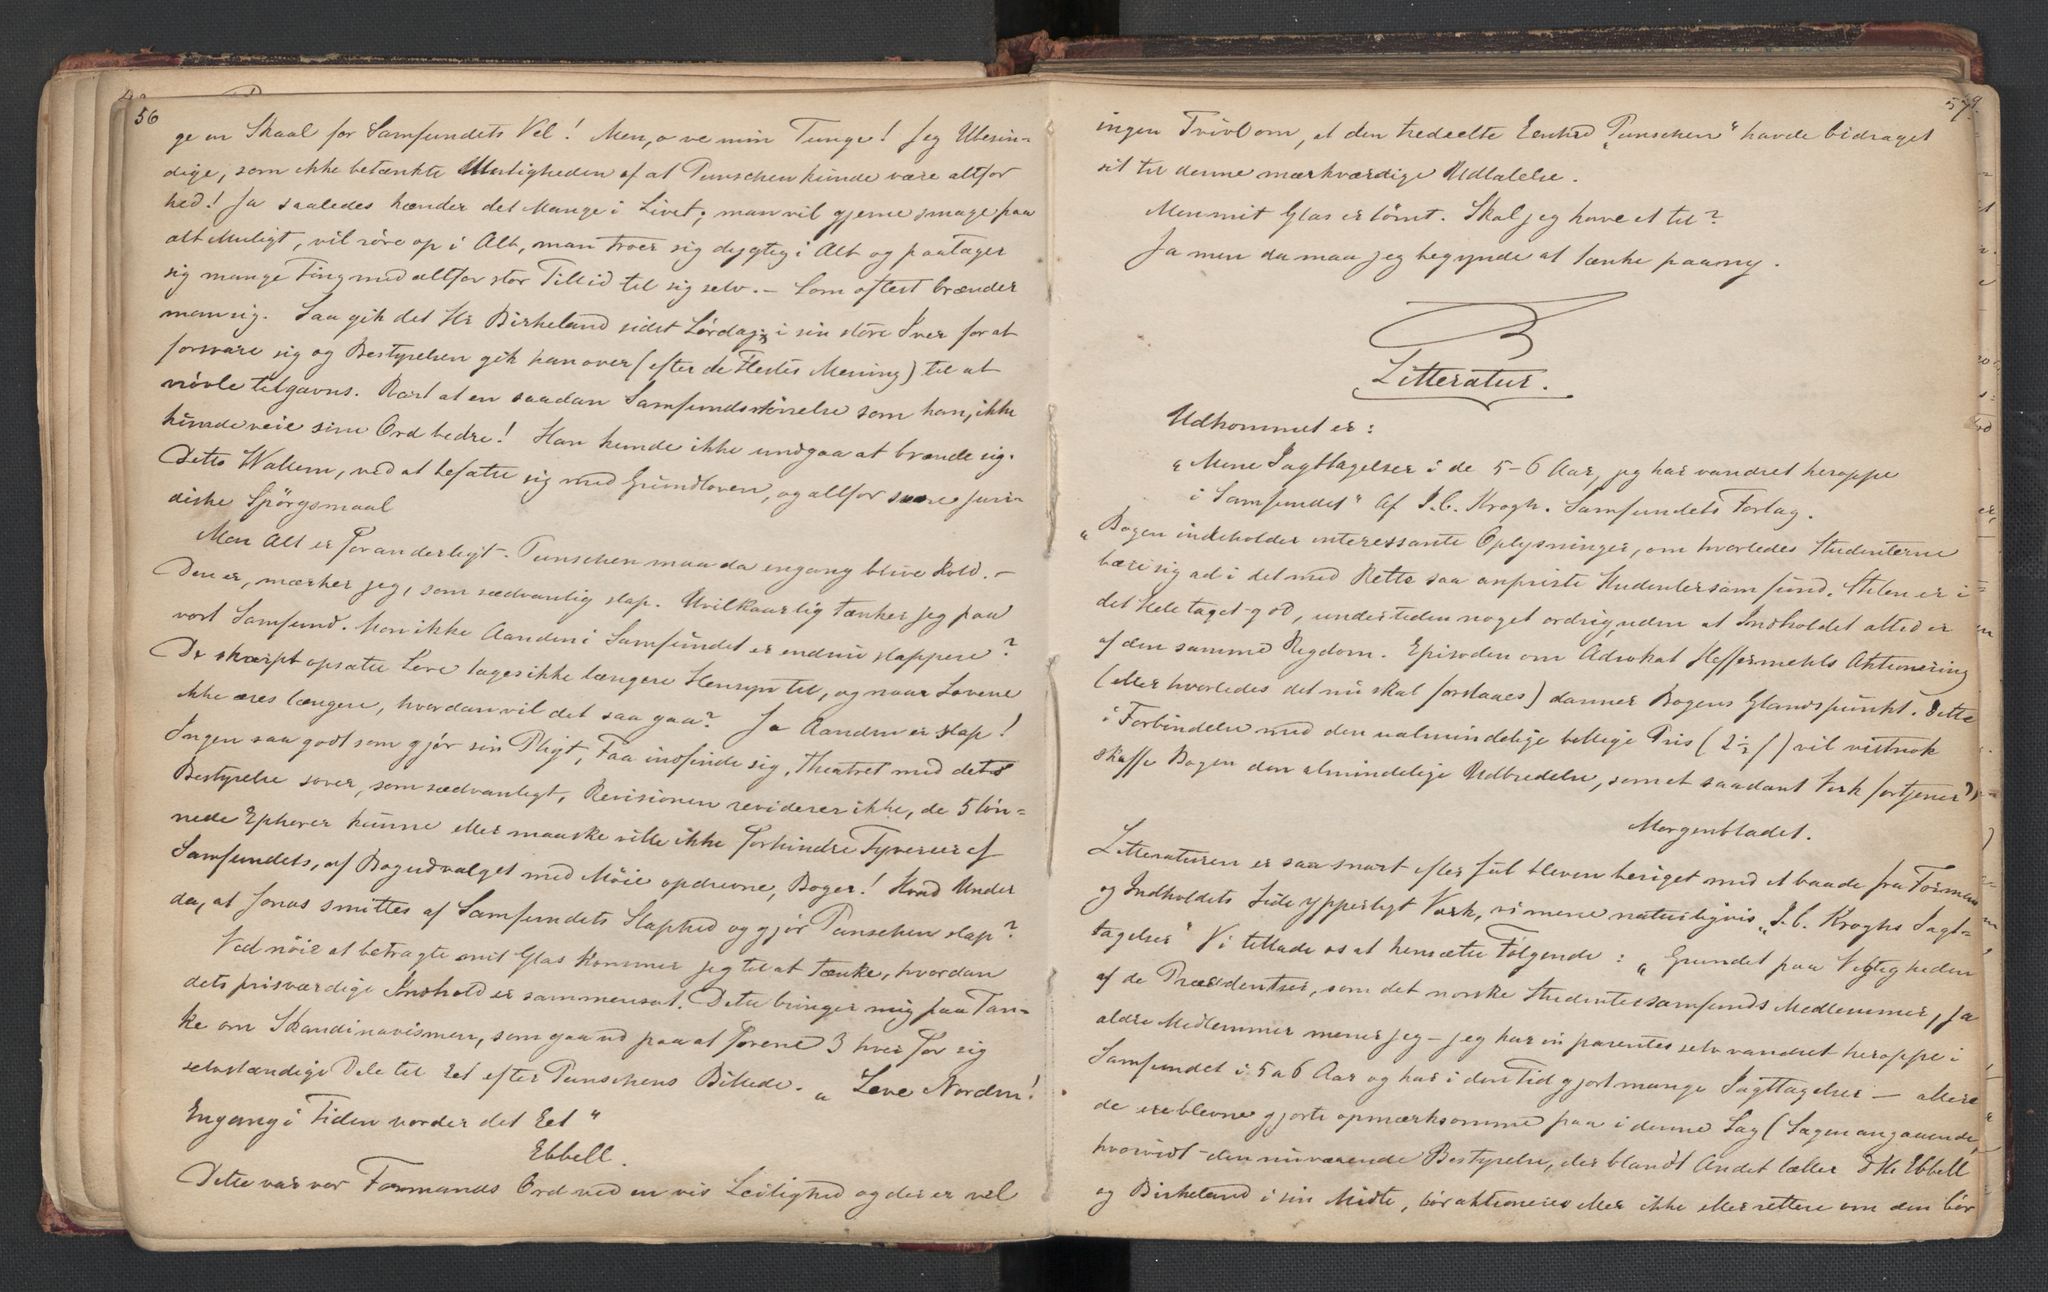 56
ge en Skaal for Samfundets Vel! Men, o ve min Tunge! Jeg Ubesin-
dige, som ikke betænkte Muligheden af at Punschen kunde være altfor
hed! Ja saaledes hænder det Mange i Livet; man vil gjerne smage paa
alt Muligt, vil röre op i Alt, man troer sig dygtig i Alt og paatager
sig mange Ting med altfor stor Tillid til sig selv. – Som oftest brænder
man sig. Saa gik det Hr Birkeland sidst Lördag; i sin store Iver for at
forsvare sig og Bestyrelsen gik han over (efter de Flestes Mening) til at
vrövle tilgavns. Rart at en saadan Samfundsstörrelse som han, ikke
kunde veie sine Ord bedre! Han kunde ikke undgaa at brænde sig.
Detto Wallem, ved at befatte sig med Grundloven, og altfor svære juri-
diske Spörgsmaal
Men Alt er Foranderligt – Punschen maa da engang blive kold. –
Den er, mærker jeg, som sædvanlig slap. Uvilkaarlig tænker jeg paa
vort Samfund. Mon ikke Aanden i Samfundet er endnu slappere?
De skærpt opsatte Love tages ikke længere Hensyn til, og naar Lovene
ikke æres længere, hvordan vil det saa gaa? Ja Aanden er slap!
Ingen saa godt som gjör sin Pligt, Faa indfinde sig, Theatret med dets
Bestyrelse sover, som sædvanligt, Revisionen reviderer ikke, de 5 lön-
nede Ephorer kunne eller maaske ville ikke forhindre Tyverier af
Samfundets, af Bogudvalget med Möie opdrevne, Boger! Hvad Under
da, at Jonas smittes af Samfundets Slaphed og gjör Punschen slap?
Ved nöie at betragte mit Glas kommer jeg til at tænke, hvordan
dets prisværdige Indhold er sammensat. Dette bringer mig paa Tan-
ke om Skandinavismen, som gaar ud paa at forene 3 hver for sig
selvstændige Dele til Eet efter Punschens Billede. „Leve Norden!
Engang i Tiden vorder det Eet“
Ebbell.
Dette var vor Formands Ord ved en vis Leilighed og der er vel
57
ingen Tvivl om, at den tredeelte Eenhed „Punschen“ havde bidraget
sit til denne mærkværdige Udtalelse.
Men mit Glas er tömt. Skal jeg have et til?
Ja men da maa jeg begynde at tænke paany.
Litteratur.
Udkommet er:
„Mine Iagttagelser i de 5–6 Aar, jeg har vandret heroppe
i Samfundet“ af I. C. Krogh. Samfundets Forlag.
„Bogen indeholder interessante Oplysninger, om hvorledes Studenterne
bære sig ad i det med Rette saa anpriste Studentersamfund. Stilen er i
det Hele taget god, undertiden noget ordrig, uden at Indholdet altid er
af den samme Rigdom. Episoden om Advokat Heffermehls Aktionering
(eller hvorledes det nu skal forstaaes) danner Bogens Glandspunkt. Dette
i Forbindelse med den ualmindelige billige Pris (2½ ſ) vil vistnok
skaffe Bogen den almindelige Udbredelse, som et saadant Værk fortjener“
Morgenbladet.
Litteraturen er saa snart efter Jul bleven beriget med et baade fra Formens
og Indholdets Side ypperligt Værk, vi mene naturligvis „I. C. Kroghs Iagt-
tagelser“ Vi tillade os at hensætte Følgende: „Grundet paa Vigtigheden
af de Præcedentser, som det norske Studentersamfunds Medlemmer, ja
ældre Medlemmer mener jeg – jeg har in parentes selv vandret heroppe i
Samfundet i 5 a 6 Aar og har i den Tid gjort mange Iagttagelser – allere
de ere blevne gjorte opmærksomme paa i denne Sag (Sagen angaaende,
hvorvidt den nuværende Bestyrelse, der blandt Andet tæller DHr Ebbell
og Birkeland i sin Midte, bör aktioneres eller ikke eller rettere om den bör